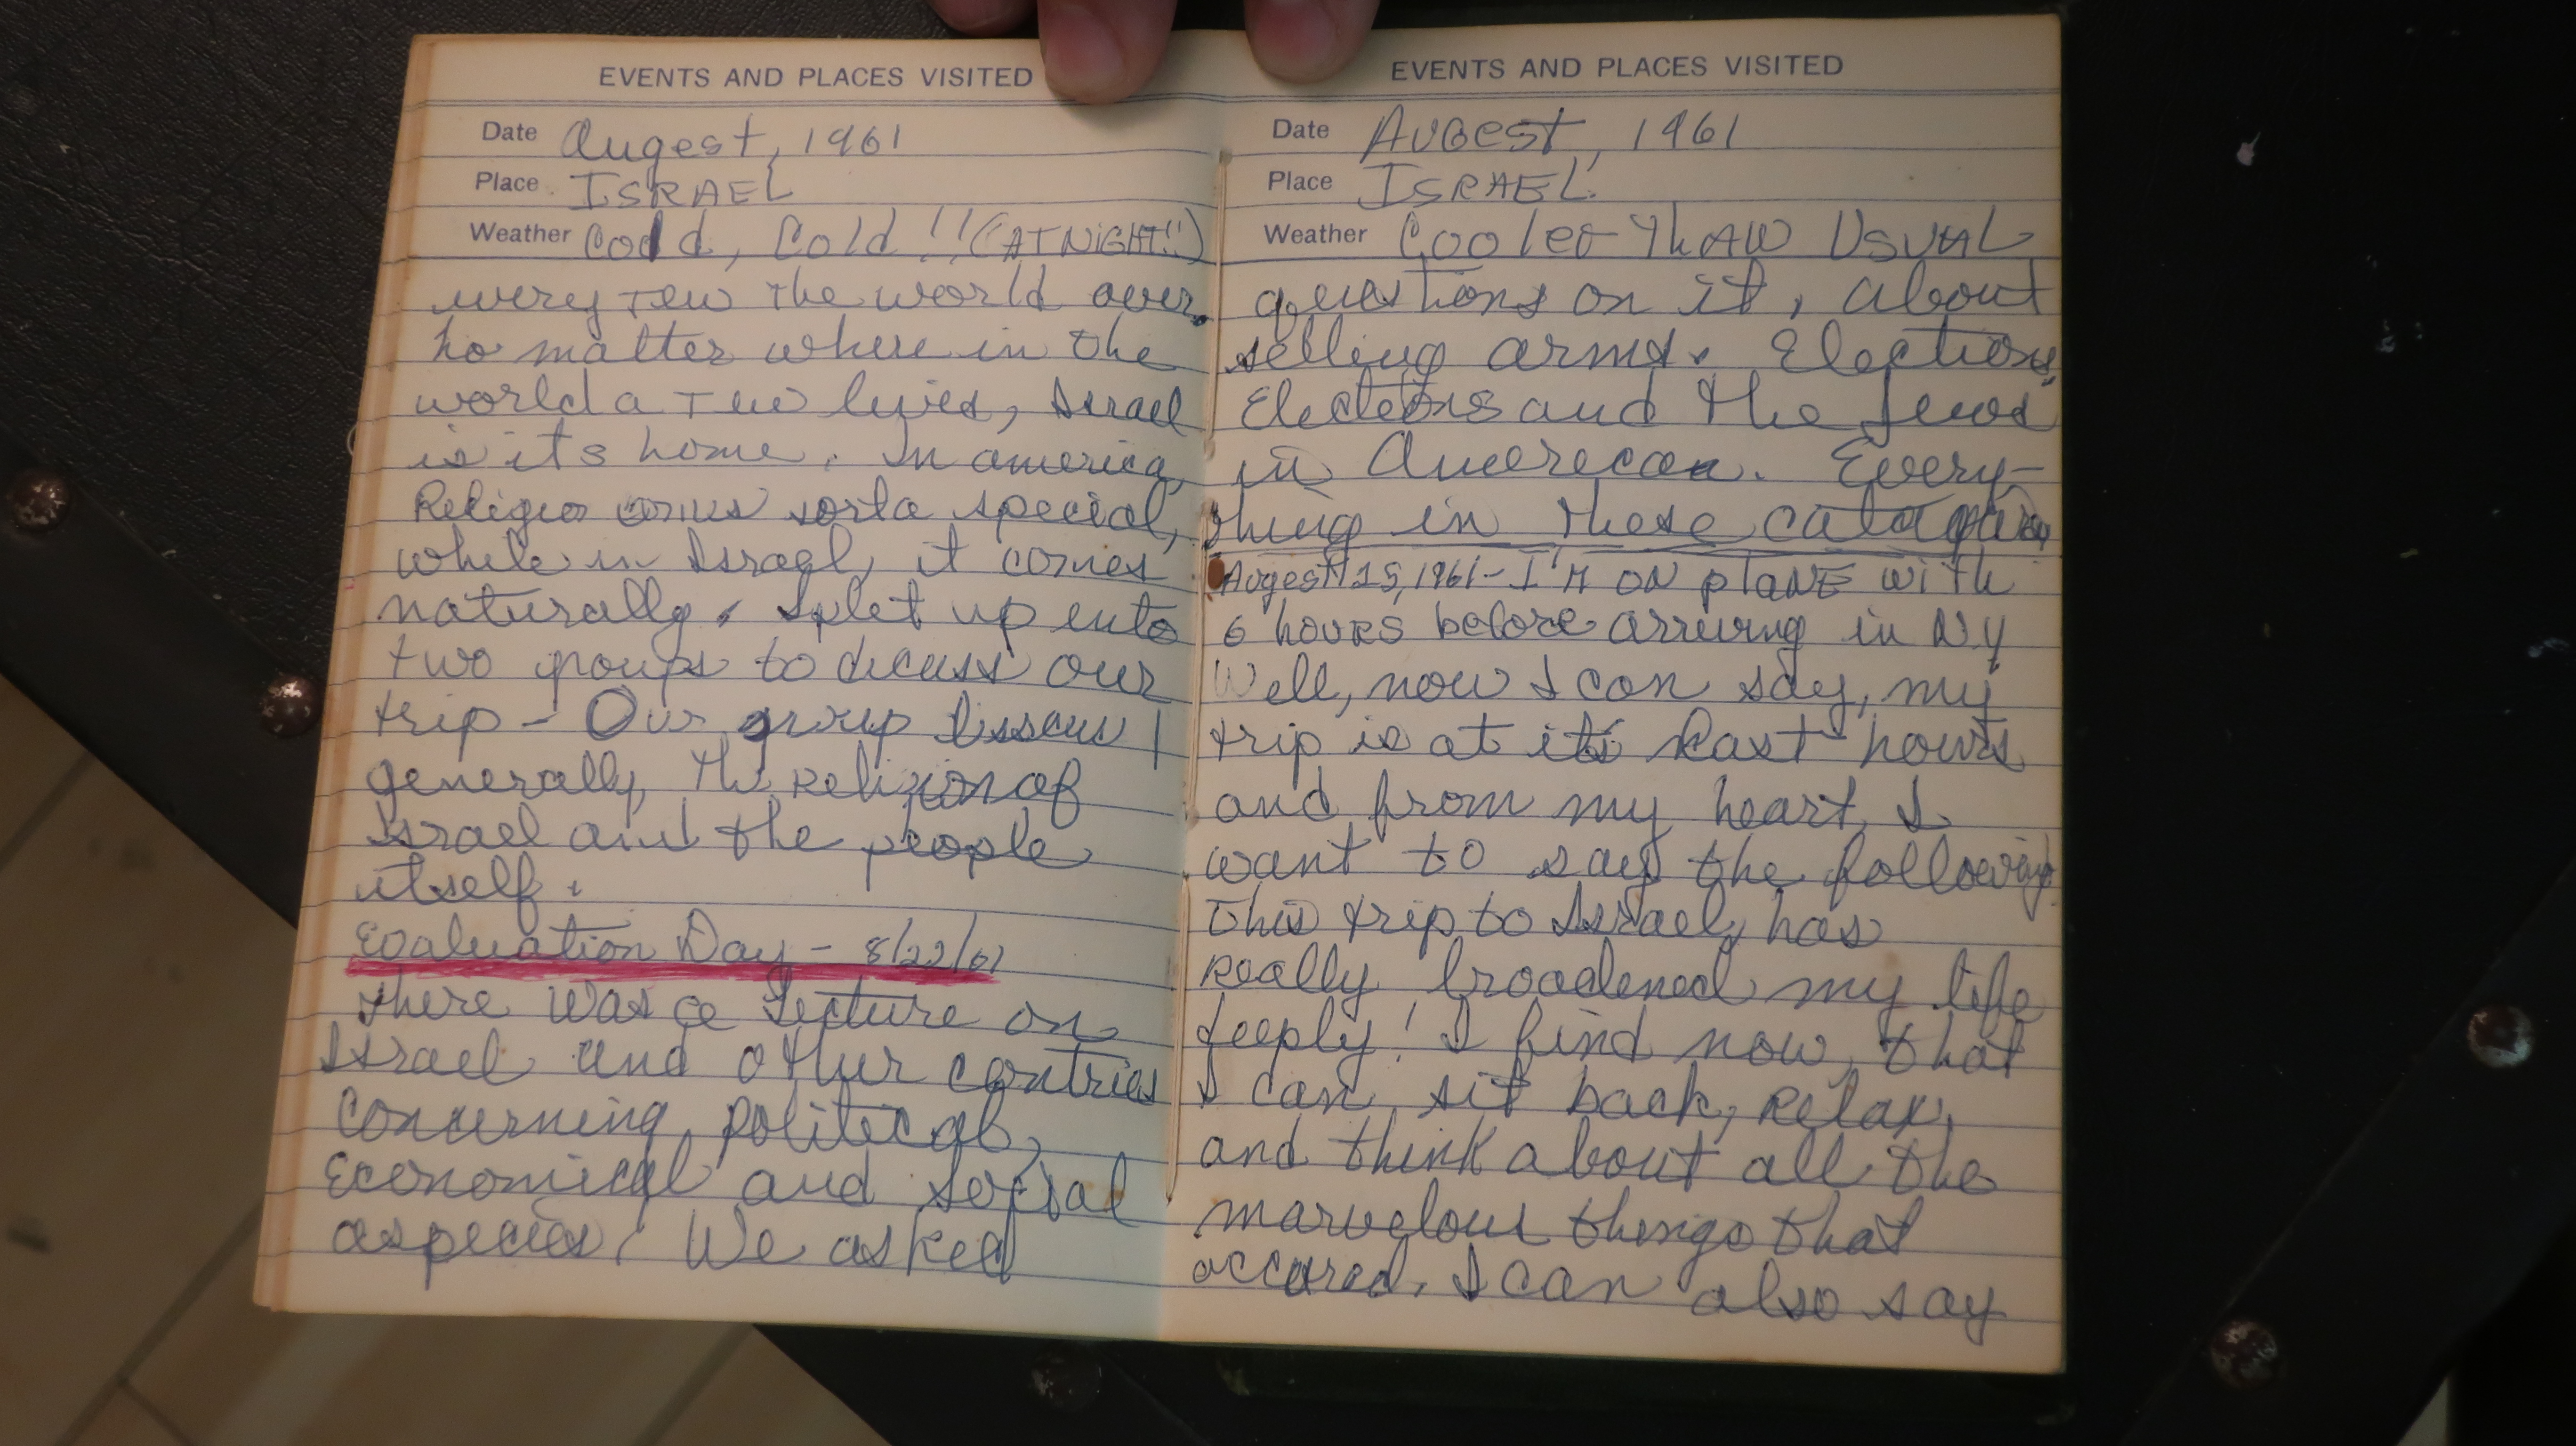 EVENTS AND PLACES VISITED
Date Augest, 1961
Place ISRAEL
Weather Cold, Cold!! (AT NIGHT!!)
every Jew the world over.
no matter where in the
world a Jew lives, Israel
is it's home. In america,
Religion comes sorta special,
while in Israel, it comes
naturally. Split up into
two groups to dicuss our
trip - Our group Disscus
generally, the Religion of
Israel and the people
itself.
Evaluation Day - 8/22/61
There was a Lecture on
Israel and other contries
concerning political,
economical and social
aspects. We asked
EVENTS AND PLACES VISITED
Date AUGEST, 1961
Place ISRAEL
Weather Cooler ThAN USUAL
questions on it, about
selling arms. Elections,
Elections and the Jews
in American. Every-
thing in these
Augest 25, 1961 - I'M ON plANE with
6 hours before arriving in NY
Well, now I can say, my
trip is at its last hours
and from my heart, I
want to say the following
This trip to Israel, has
Really broadened my life
deeply! I find now, that
I can sit back, Relax,
and think about all the
marvelous things that
occured. I can also say